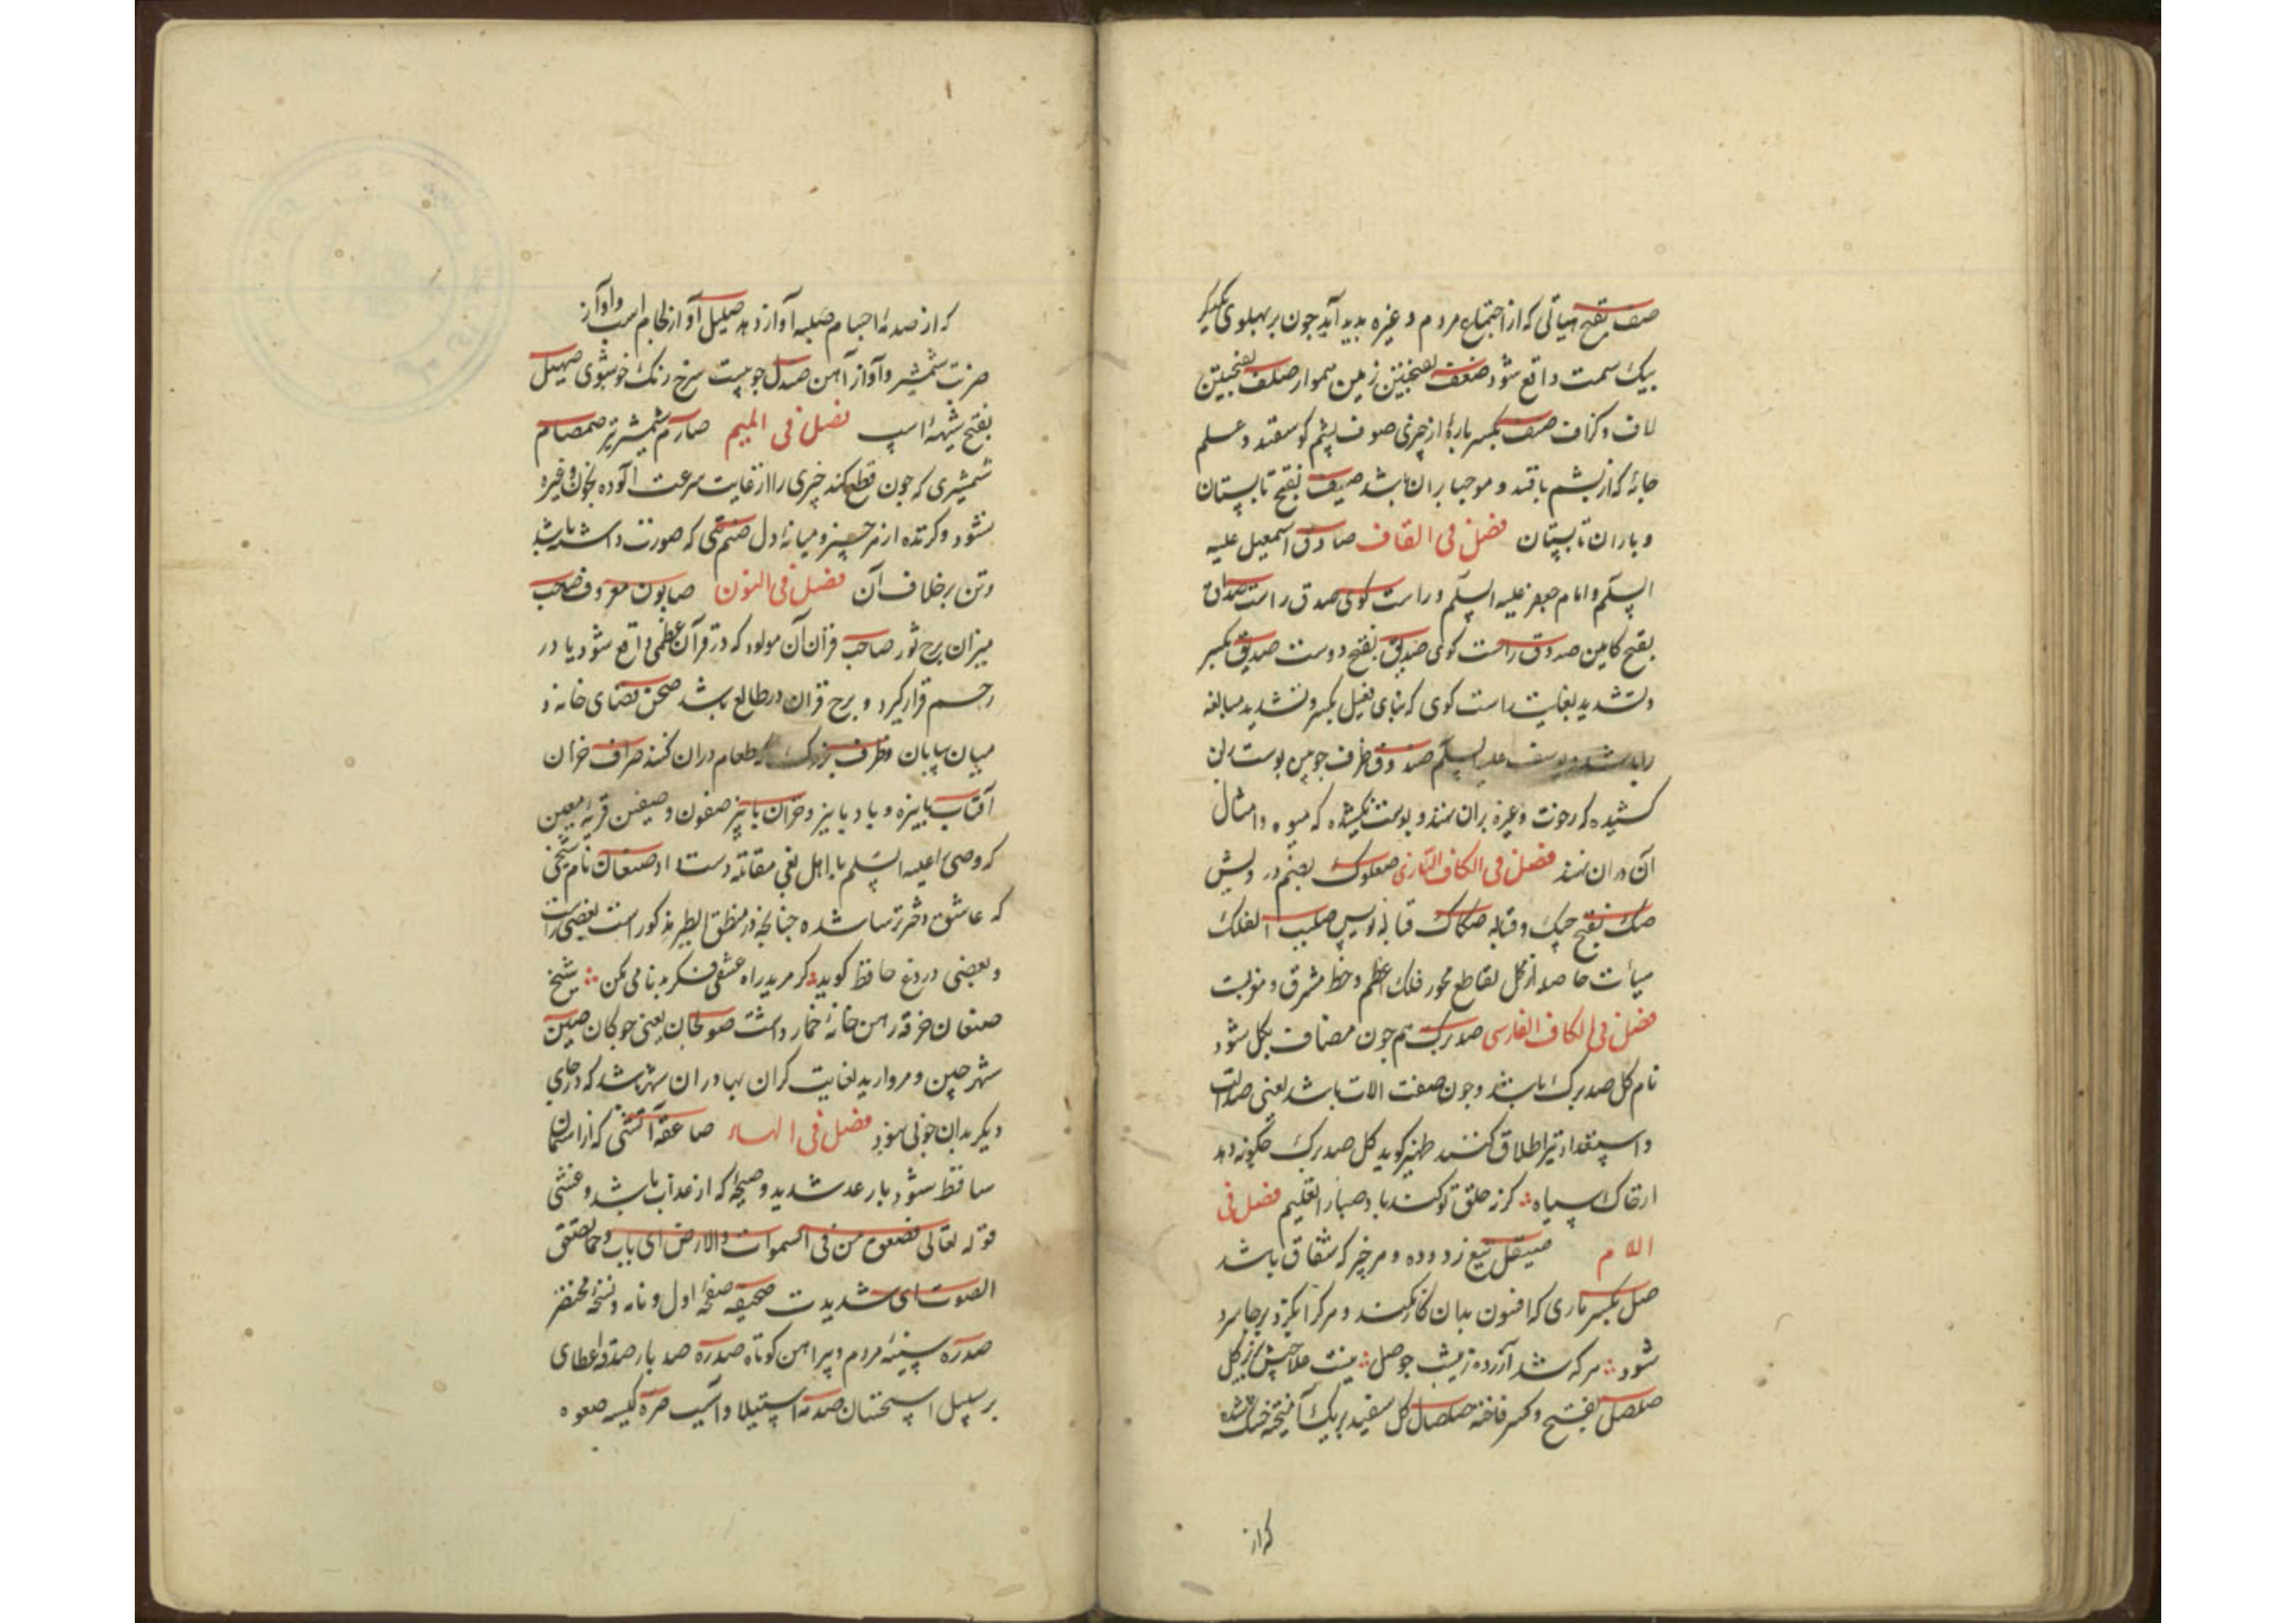 صف بفتح هیأتی که از اجتماع مردم و غیره پدید آید چون بر پهلوی یکدیگر
بیک سمت واقع شود صفصف بفتحتین زمین هموار صلف بفتحتین
لاف و کزاف صنف بکسر پارۀ از چیزی صوف پشم کوسفند و علم
جامۀ که از پشم بافند و موجب باران باشد صیف بفتح تابستان
و باران تابستان فصل فی القاف صادق اسمعیل علیه
السلم و امام جعفر علیه السلم و راست کوی صدق راست صداق
بفتح کابین صدوق راست کوی صدیق بفتح دوست صدیق بکسر
و تشدید بغایت راست کوی که بنای فعیل بکسر و تشدید مبالغه
را باشد و یوسف علیه السلم صندوق ظرف چوبین پوست بران
کشیده که رخوت و غیره بران نهند و پوست نکشیده که میوه و امثال
آن دران نهند فصل فی الکاف التازی صعلوک بضم درویش
صک بفتح چک و قباله صکاک قباله نویس صلیب الفلک
هیأت حاصله از کل تقاطع محور فلک اعظم و خط مشرق و مغرب
فصل فی الکاف الفارسی صد برک هم چون مضاف بکل شود
نام کل صد برک باشد و چون صفت الات باشد یعنی صد الت
و استعداد نیز اطلاق کنند ظهیر کوید کل صد برک چکونه دهد
ارخاک سیاه کرنه خلق تو کند باد صبا را تعلیم فصل فی
اللام صیقل تیغ زدوده و هر چیز که شفاف باشد
صل بکسر ماری که افسون بدان کار نکند و هر کرا بکزد بر جا سرد
شود هر که شد آزرده ز نیش چو صل نیست علاجش بجز کل
صلصل بفتح و کسر فاخته صلصال کل سفید بریک آمیخته خشک شده
که از
که از صدمۀ اجسام صلبه آواز دهد صلیل آواز لجام اسپ و آواز
ضربت شمشیر و آواز آهن صندل چوبیست سرخ رنک خوشبوی صهیل
بفتح شیهۀ اسپ فصل فی المیم صارم شمشیر تیز صمصام
شمشیری که چون قطع کند چیزی را از غایت سرعت آلوده بخون و غیره
نشود و کرنده از هر چیز و میانۀ دل صنم بتی که صورت داشته باشد
وثن بر خلاف آن فصل فی النون صابون معروف صاحب
میزان برج ثور صاحب قران آن مولود که در قرآن عظمی واقع شود یا در
رحم قرار کیرد و برج قران در طالع باشد صحن فضای خانه و
میان بیابان و ظرف بزرک که طعام دران کنند صراف خزان
آفتاب پاییزه و باد پاییز و خزان پاییز صفون و صفین قریۀ معین
که وصی را علیه السلم با اهل بغی مقاتله دست داد صنعان نام شیخی
که عاشق دختر ترسا شده چنانچه در منطق الطیر مذکور است بعضی راست
و بعضی دروغ حافظ کوید کر مرید راه عشقی فکر بدنامی مکن شیخ
صنعان خرقه رهن خانۀ خمار داشت صولجان یعنی چوکان صین
شهر چین و مروارید بغایت کران بها دران شهر باشد که در جای
دیکر بدان خوبی نبود فصل فی الهاء صاعقه آتشی که از آسمان
ساقط شود با رعد شدید و صیحۀ که از عذاب باشد و غشی
قوله تعالی فصعق من فی السموات و الارض ای مات و حمار صعق
الصوت ای شدیدت صحیفه صفحۀ اول و نامه و نسخۀ مختصر
صدره سینۀ مردم و پیراهن کوتاه صدره صد بار صدقه عطای
بر سبیل استحسان صدمه استیلا و آسیب صره کیسه صعوه